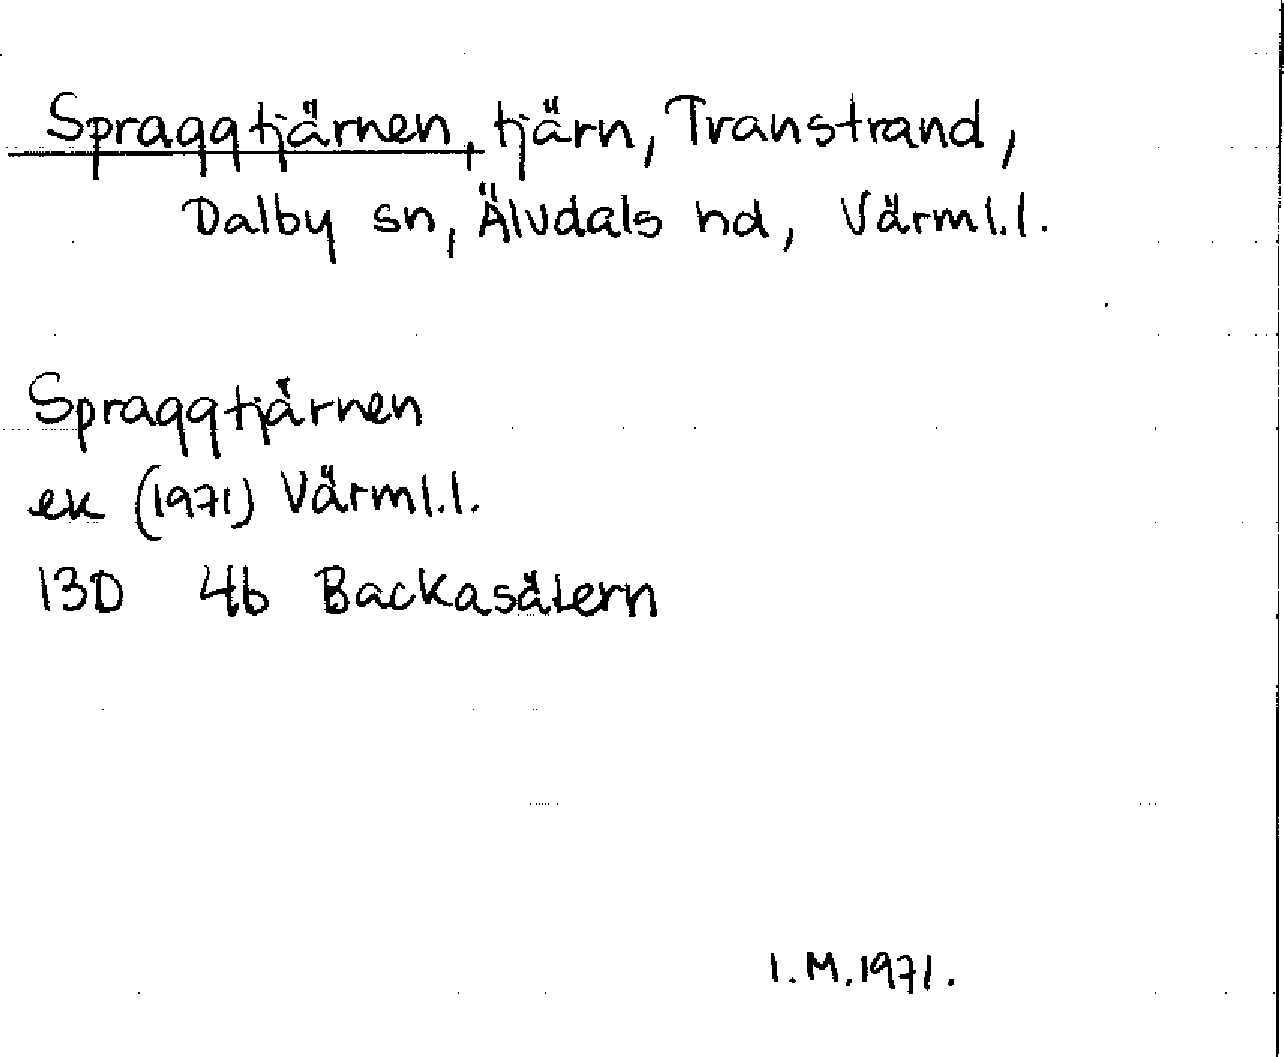 Spraggtjärnen, tjärn, Transtrand,
Dalby sn, Älvdals hd, Värml.l.
Spraggtjärnen
ek (1971) Värml.l.
13D 4b Backasätern
I.M.1971.